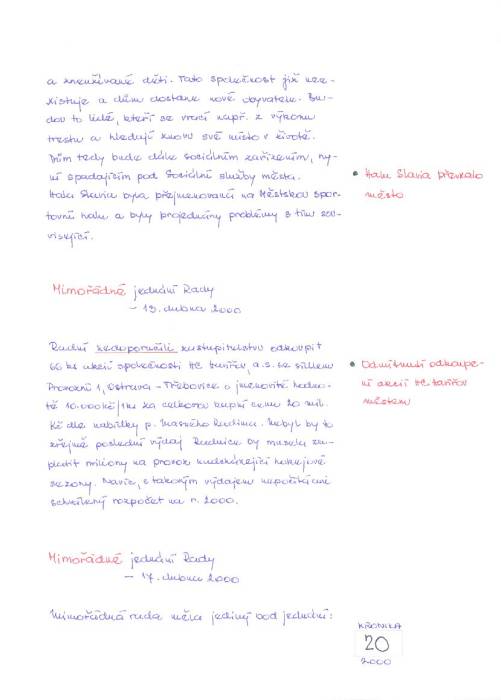 a zneužívané děti. Tato společnost již nee-
xistuje a dům dostane nové obyvatele. Bu-
dou to lidé, kteří se vrací např. z výkonu
trestu a hledají znovu své místo v životě.
Dům tedy bude dále sociálním zařízením, ny-
ní spadajícím pod Sociální služby města.
Hala Slavia byla přejmenovaná na Městskou spor-
tovní halu a byly projednány problémy s tím sou-
visející.
• Halu Slavia převzalo
město
Mimořádné jednání Rady
- 13. dubna 2000
Radní nedoporučili zastupitelstvu odkoupit
66 ks akcií společnosti HC Havířov, a.s. se sídlem
Provozní 1, Ostrava - Třebovice o jmenovité hodno-
tě 10.000 Kč/1ks za celkovou kupní cenu 20 mil.
Kč dle nabídky p. Rudima. Nebyl by to
zřejmě poslední výdaj. Radnice by musela za-
platit miliony na provoz nadcházející hokejové
sezony. Navíc, s takovým výdajem nepočítá ani
schválený rozpočet na r. 2000.
• Odmítnutí odkoupe-
ní akcií HC Havířov
městem
Mimořádné jednání Rady
- 17. dubna 2000
Mimořádná rada měla jediný bod jednání:
KRONIKA
20
2000